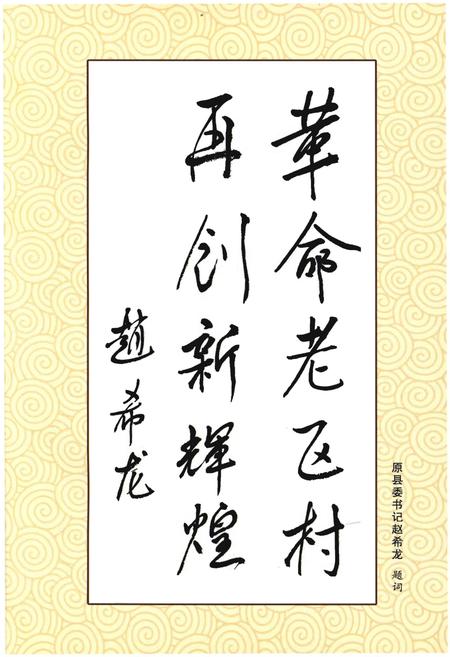 革命老区村
再创新辉煌
赵希龙
原县委书记赵希龙 题词